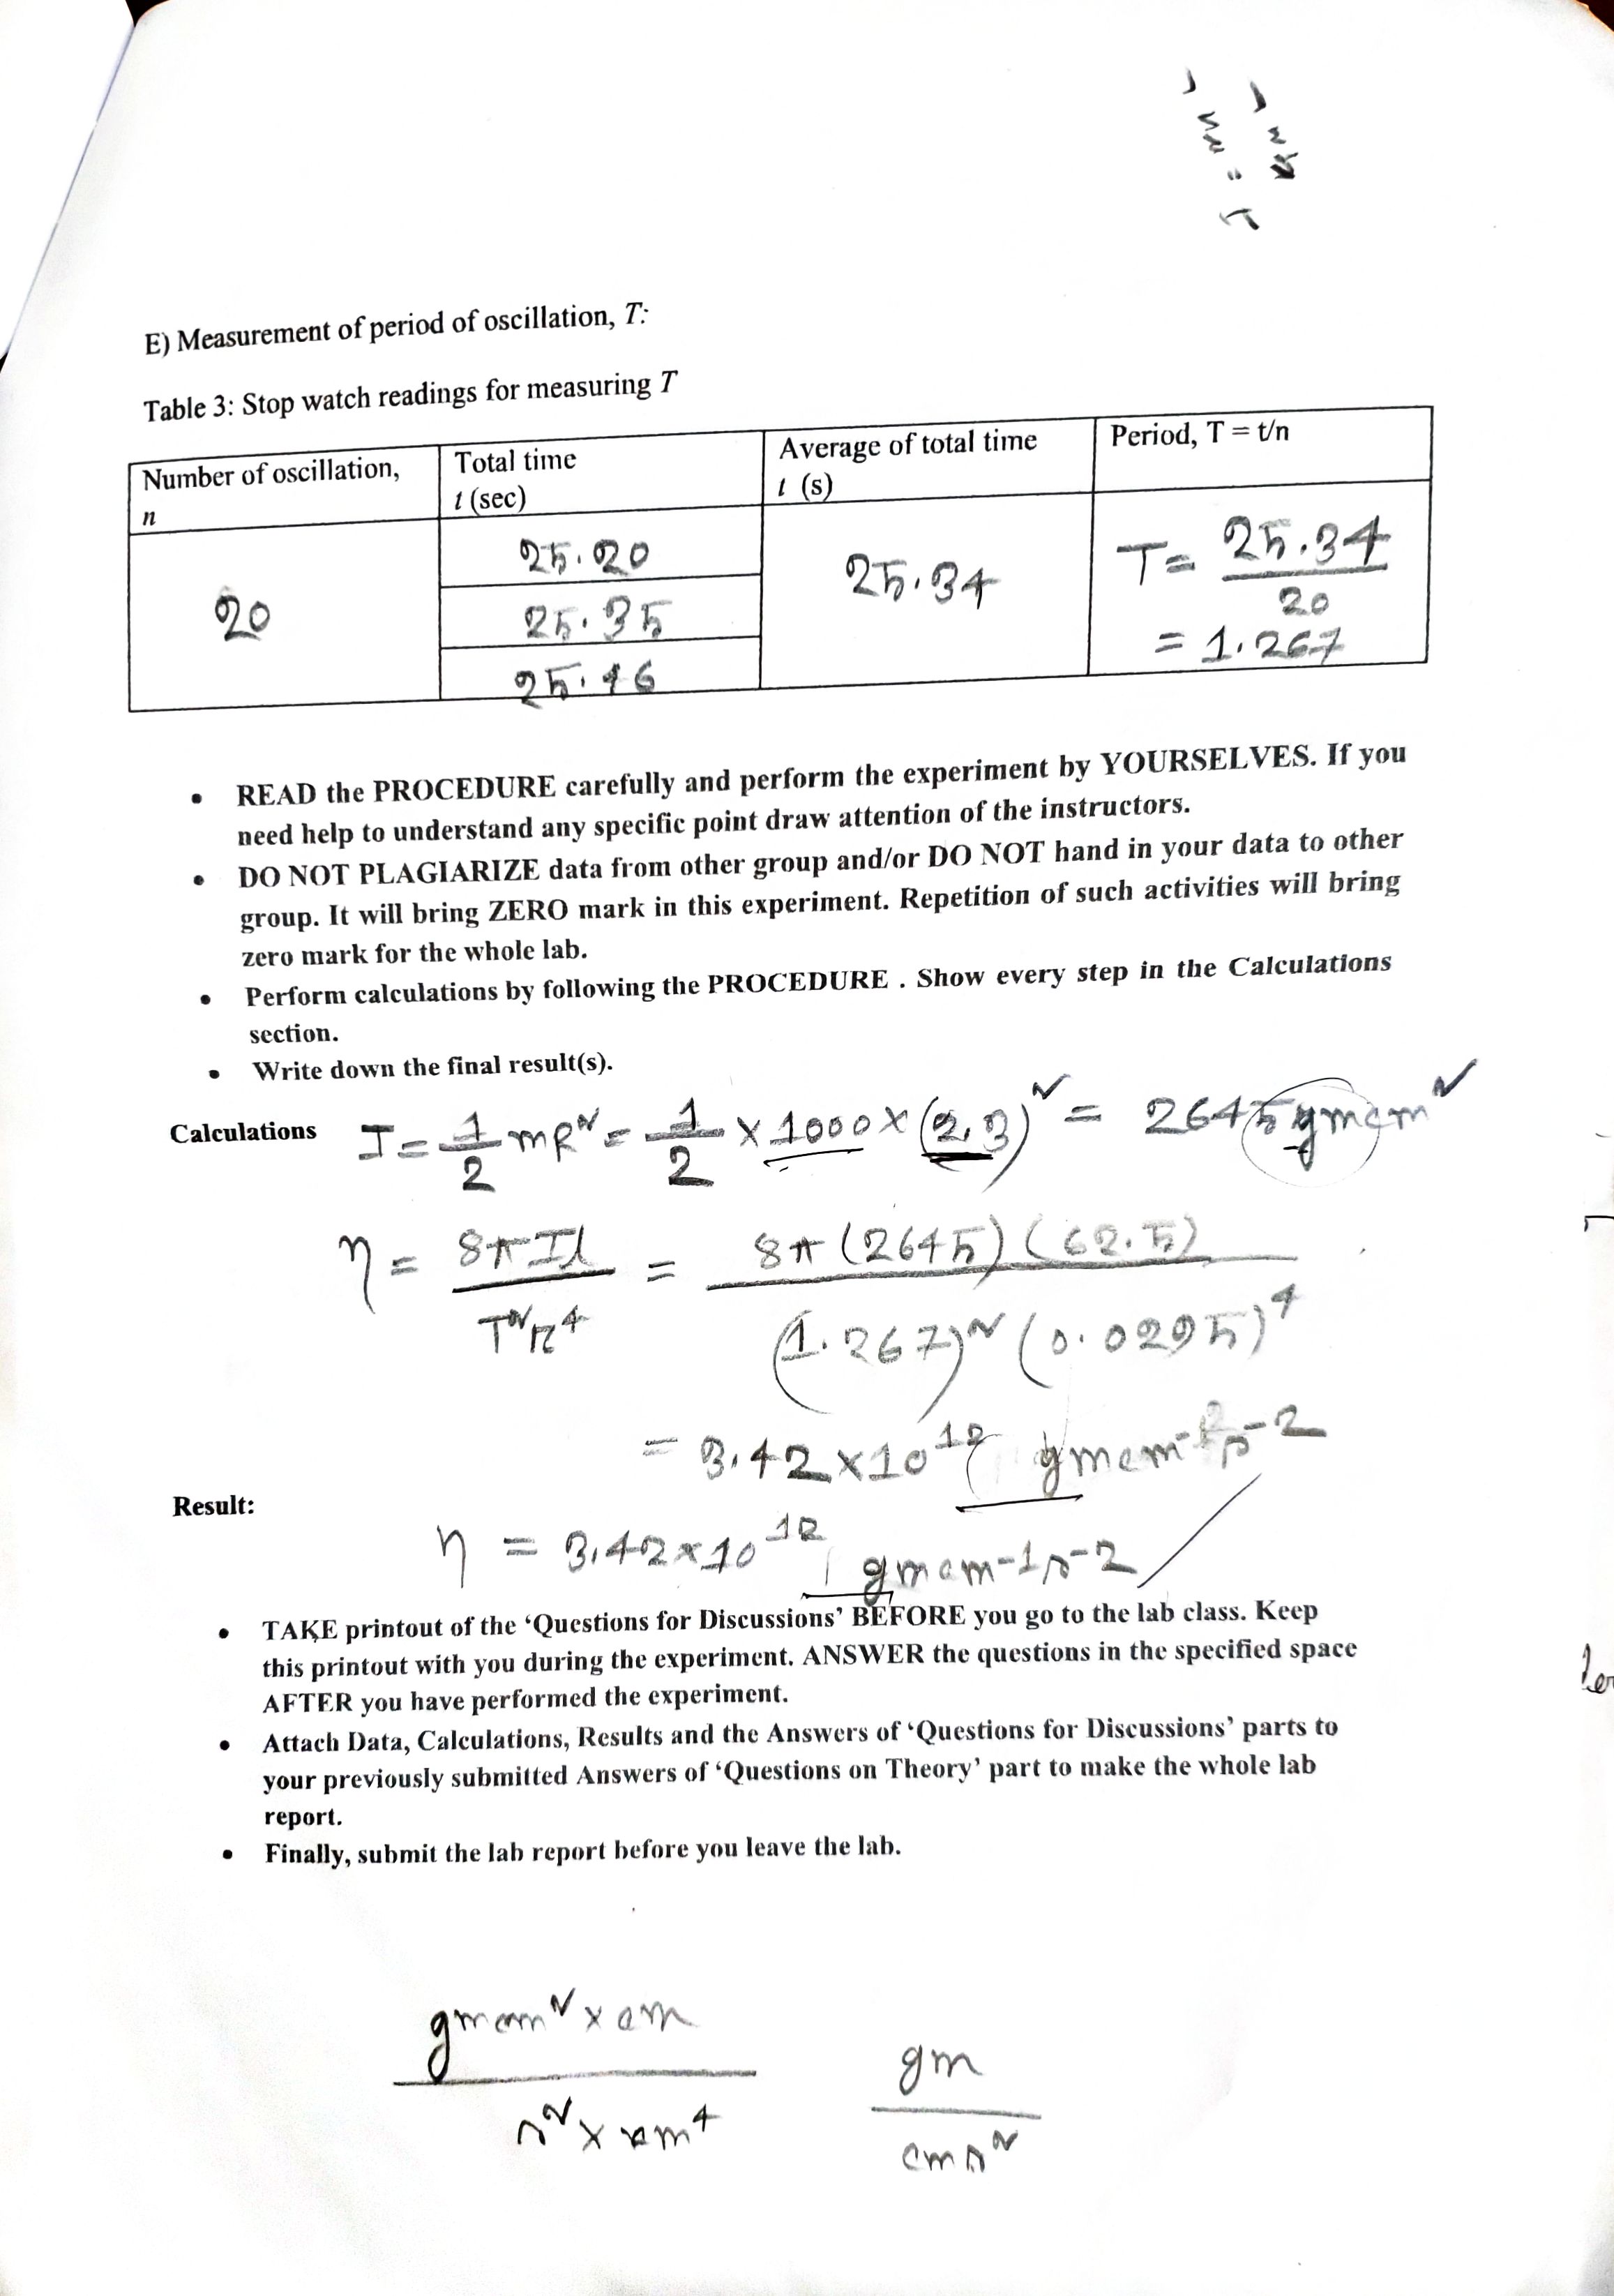 E) Measurement of period of oscillation, T:
Table 3: Stop watch readings for measuring T
Number of oscillation, n
Total time t (sec)
Average of total time t (s)
Period, T = t/n
20
25.20
25.35
25.46
25.34
T = 25.34 / 20
= 1.267
• READ the PROCEDURE carefully and perform the experiment by YOURSELVES. If you
need help to understand any specific point draw attention of the instructors.
• DO NOT PLAGIARIZE data from other group and/or DO NOT hand in your data to other
group. It will bring ZERO mark in this experiment. Repetition of such activities will bring
zero mark for the whole lab.
• Perform calculations by following the PROCEDURE . Show every step in the Calculations
section.
• Write down the final result(s).
Calculations I = 1/2 mR² = 1/2 × 1000 × (2.3)² = 2645 gmcm²
η = 8πIl / T²r⁴ = 8π (2645) (62.5) / (1.267)² (0.0295)⁴
= 3.42 × 10¹² gmcm⁻¹s⁻²
Result:
η = 3.42 × 10¹² gmcm⁻¹s⁻²
• TAKE printout of the ‘Questions for Discussions’ BEFORE you go to the lab class. Keep
this printout with you during the experiment. ANSWER the questions in the specified space
AFTER you have performed the experiment.
• Attach Data, Calculations, Results and the Answers of ‘Questions for Discussions’ parts to
your previously submitted Answers of ‘Questions on Theory’ part to make the whole lab
report.
• Finally, submit the lab report before you leave the lab.
gmcm² × cm / s² × cm⁴
gm / cms²